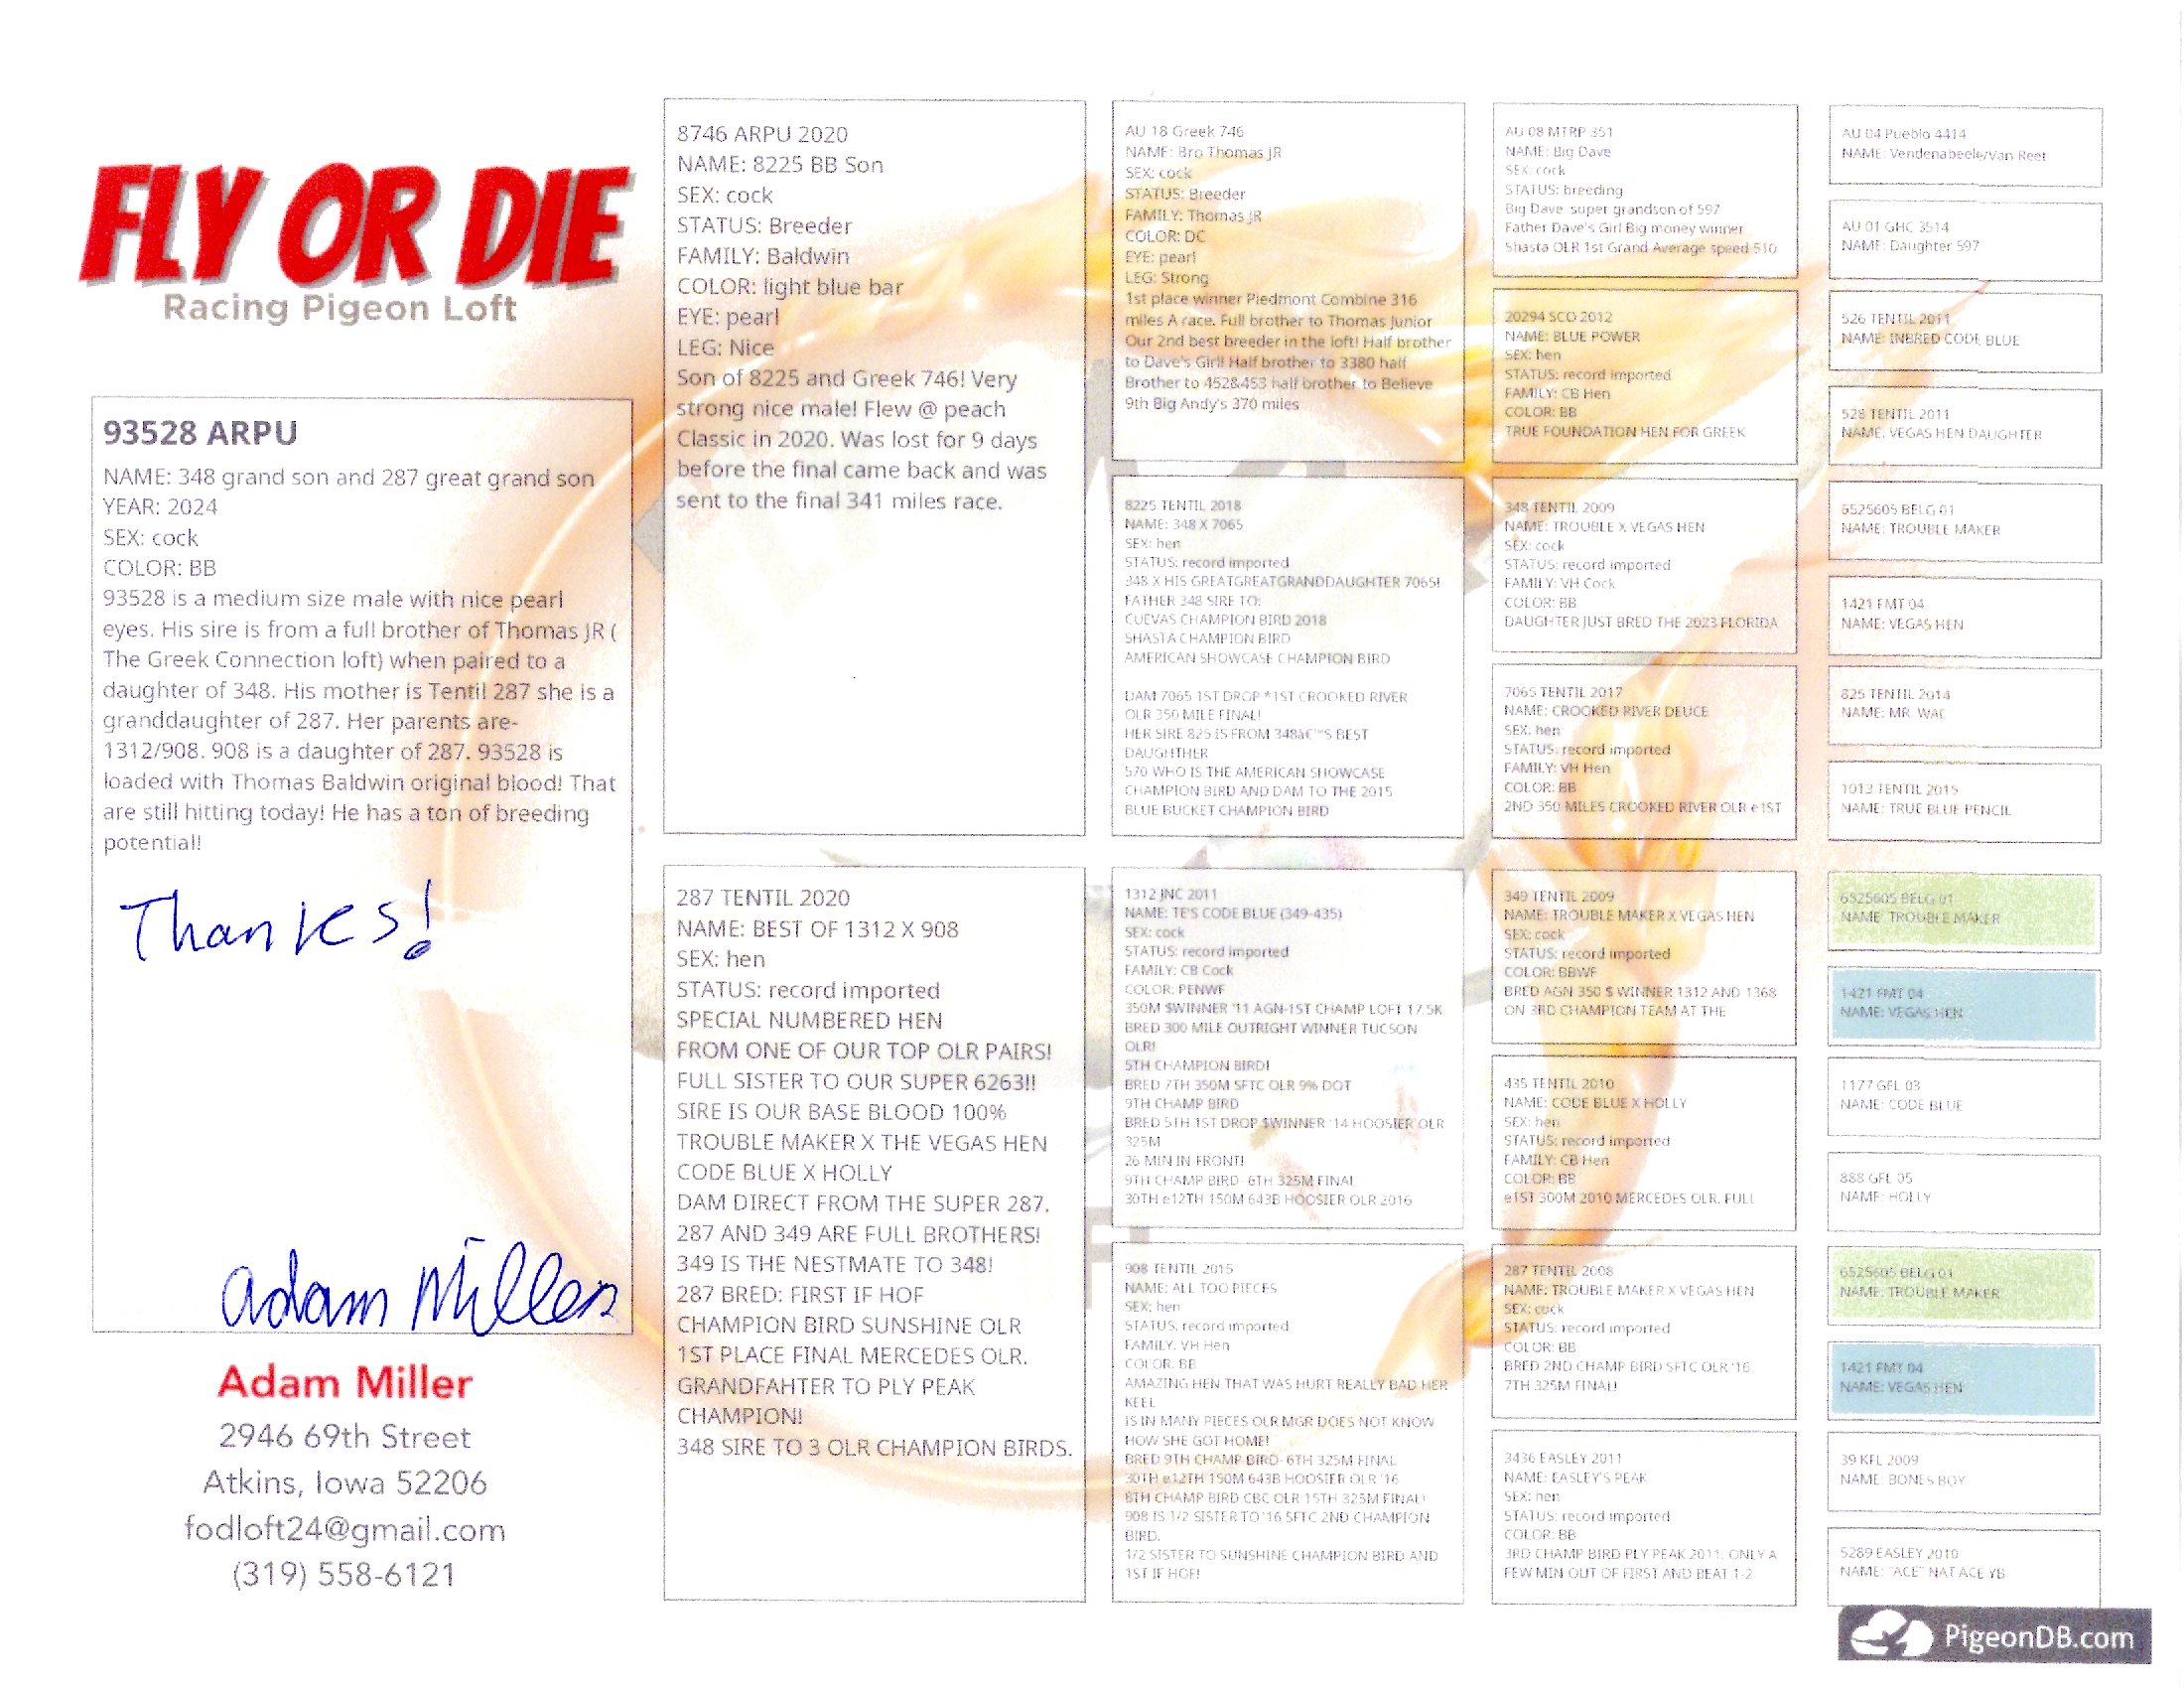 FLY OR DIE
Racing Pigeon Loft
93528 ARPU
NAME: 348 grand son and 287 great grand son
YEAR: 2024
SEX: cock
COLOR: BB
93528 is a medium size male with nice pearl
eyes. His sire is from a full brother of Thomas JR (
The Greek Connection loft) when paired to a
daughter of 348. His mother is Tentil 287 she is a
granddaughter of 287. Her parents are-
1312/908. 908 is a daughter of 287. 93528 is
loaded with Thomas Baldwin original blood! That
are still hitting today! He has a ton of breeding
potential!
Thanks!
Adam Miller
Adam Miller
2946 69th Street
Atkins, Iowa 52206
fodloft24@gmail.com
(319) 558-6121
8746 ARPU 2020
NAME: 8225 BB Son
SEX: cock
STATUS: Breeder
FAMILY: Baldwin
COLOR: light blue bar
EYE: pearl
LEG: Nice
Son of 8225 and Greek 746! Very
strong nice male! Flew @ peach
Classic in 2020. Was lost for 9 days
before the final came back and was
sent to the final 341 miles race.
287 TENTIL 2020
NAME: BEST OF 1312 X 908
SEX: hen
STATUS: record imported
SPECIAL NUMBERED HEN
FROM ONE OF OUR TOP OLR PAIRS!
FULL SISTER TO OUR SUPER 6263!!
SIRE IS OUR BASE BLOOD 100%
TROUBLE MAKER X THE VEGAS HEN
CODE BLUE X HOLLY
DAM DIRECT FROM THE SUPER 287.
287 AND 349 ARE FULL BROTHERS!
349 IS THE NESTMATE TO 348!
287 BRED: FIRST IF HOF
CHAMPION BIRD SUNSHINE OLR
1ST PLACE FINAL MERCEDES OLR.
GRANDFAHTER TO PLY PEAK
CHAMPION!
348 SIRE TO 3 OLR CHAMPION BIRDS.
AU 18 Greek 746
NAME: Bro Thomas JR
SEX: cock
STATUS: Breeder
FAMILY: Thomas JR
COLOR: DC
EYE: pearl
LEG: Strong
1st place winner Piedmont Combine 316
miles A race. Full brother to Thomas Junior
Our 2nd best breeder in the loft! Half brother
to Dave's Girl! Half brother to 3380 half
Brother to 452&453 half brother to Believe
9th Big Andy's 370 miles
8225 TENTIL 2018
NAME: 348 X 7065
SEX: hen
STATUS: record imported
348 X HIS GREATGREATGRANDDAUGHTER 7065!
FATHER 348 SIRE TO:
CUEVAS CHAMPION BIRD 2018
SHASTA CHAMPION BIRD
AMERICAN SHOWCASE CHAMPION BIRD
DAM 7065 1ST DROP *1ST CROOKED RIVER
OLR 350 MILE FINAL!
HER SIRE 825 IS FROM 348â€™S BEST
DAUGHTHER
570 WHO IS THE AMERICAN SHOWCASE
CHAMPION BIRD AND DAM TO THE 2015
BLUE BUCKET CHAMPION BIRD
1312 JNC 2011
NAME: TE'S CODE BLUE (349-435)
SEX: cock
STATUS: record imported
FAMILY: CB Cock
COLOR: PENWF
350M $WINNER '11 AGN-1ST CHAMP LOFT 17.5K
BRED 300 MILE OUTRIGHT WINNER TUCSON
OLR!
5TH CHAMPION BIRD!
BRED 7TH 350M SFTC OLR 9% DOT
9TH CHAMP BIRD
BRED 5TH 1ST DROP $WINNER '14 HOOSIER OLR
325M
26 MIN IN FRONT!
9TH CHAMP BIRD- 6TH 325M FINAL
30TH e12TH 150M 643B HOOSIER OLR 2016
908 TENTIL 2015
NAME: ALL TOO PIECES
SEX: hen
STATUS: record imported
FAMILY: VH Hen
COLOR: BB
AMAZING HEN THAT WAS HURT REALLY BAD HER
KEEL
IS IN MANY PIECES OLR MGR DOES NOT KNOW
HOW SHE GOT HOME!
BRED 9TH CHAMP BIRD- 6TH 325M FINAL
30TH e12TH 150M 643B HOOSIER OLR '16
8TH CHAMP BIRD CBC OLR 15TH 325M FINAL!
908 IS 1/2 SISTER TO '16 SFTC 2ND CHAMPION
BIRD.
1/2 SISTER TO SUNSHINE CHAMPION BIRD AND
1ST IF HOF!
AU 08 MTRP 351
NAME: Big Dave
SEX: cock
STATUS: breeding
Big Dave super grandson of 597
Father Dave's Girl Big money winner
Shasta OLR 1st Grand Average speed 510
20294 SCO 2012
NAME: BLUE POWER
SEX: hen
STATUS: record imported
FAMILY: CB Hen
COLOR: BB
TRUE FOUNDATION HEN FOR GREEK
348 TENTIL 2009
NAME: TROUBLE X VEGAS HEN
SEX: cock
STATUS: record imported
FAMILY: VH Cock
COLOR: BB
DAUGHTER JUST BRED THE 2023 FLORIDA
7065 TENTIL 2017
NAME: CROOKED RIVER DEUCE
SEX: hen
STATUS: record imported
FAMILY: VH Hen
COLOR: BB
2ND 350 MILES CROOKED RIVER OLR e1ST
349 TENTIL 2009
NAME: TROUBLE MAKER X VEGAS HEN
SEX: cock
STATUS: record imported
COLOR: BBWF
BRED AGN 350 $ WINNER 1312 AND 1368
ON 3RD CHAMPION TEAM AT THE
435 TENTIL 2010
NAME: CODE BLUE X HOLLY
SEX: hen
STATUS: record imported
FAMILY: CB Hen
COLOR: BB
e1ST 300M 2010 MERCEDES OLR. FULL
287 TENTIL 2008
NAME: TROUBLE MAKER X VEGAS HEN
SEX: cock
STATUS: record imported
COLOR: BB
BRED 2ND CHAMP BIRD SFTC OLR '16
7TH 325M FINAL!
3436 EASLEY 2011
NAME: EASLEY'S PEAK
SEX: hen
STATUS: record imported
COLOR: BB
3RD CHAMP BIRD PLY PEAK 2011, ONLY A
FEW MIN OUT OF FIRST AND BEAT 1-2
AU 04 Pueblo 4414
NAME: Vendenabeele/Van Reet
AU 01 GHC 3514
NAME: Daughter 597
526 TENTIL 2011
NAME: INBRED CODE BLUE
528 TENTIL 2011
NAME: VEGAS HEN DAUGHTER
6525605 BELG 01
NAME: TROUBLE MAKER
1421 FMT 04
NAME: VEGAS HEN
825 TENTIL 2014
NAME: MR. WAC
1013 TENTIL 2015
NAME: TRUE BLUE PENCIL
6525605 BELG 01
NAME: TROUBLE MAKER
1421 FMT 04
NAME: VEGAS HEN
1177 GFL 03
NAME: CODE BLUE
888 GFL 05
NAME: HOLLY
6525605 BELG 01
NAME: TROUBLE MAKER
1421 FMT 04
NAME: VEGAS HEN
39 KFL 2009
NAME: BONES BOY
5289 EASLEY 2010
NAME: "ACE" NAT ACE YB
PigeonDB.com